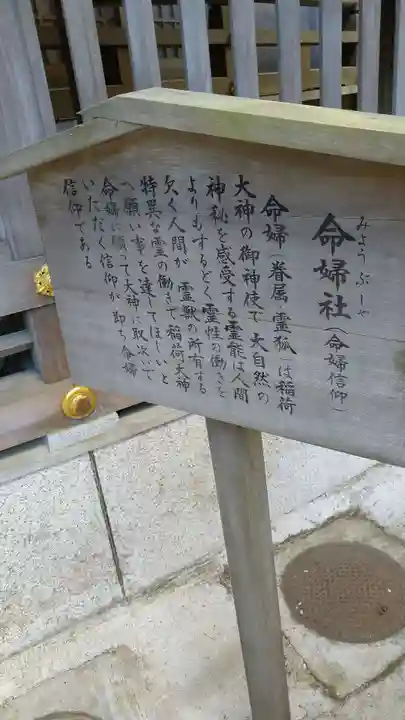 みようぶーや
命婦社（命婦信仰）
命婦（眷属 霊狐）は稲荷
大神の御神使で大自然の
神秘を感受する霊能は人間
よりもするどく霊性の働きを
欠く人間が 霊獣の所有する
特異な霊の働きで稲荷大神
へ願い事を達してほしいと
命婦に願って大神に取次いで
いただく信仰が 即ち命婦
信仰である